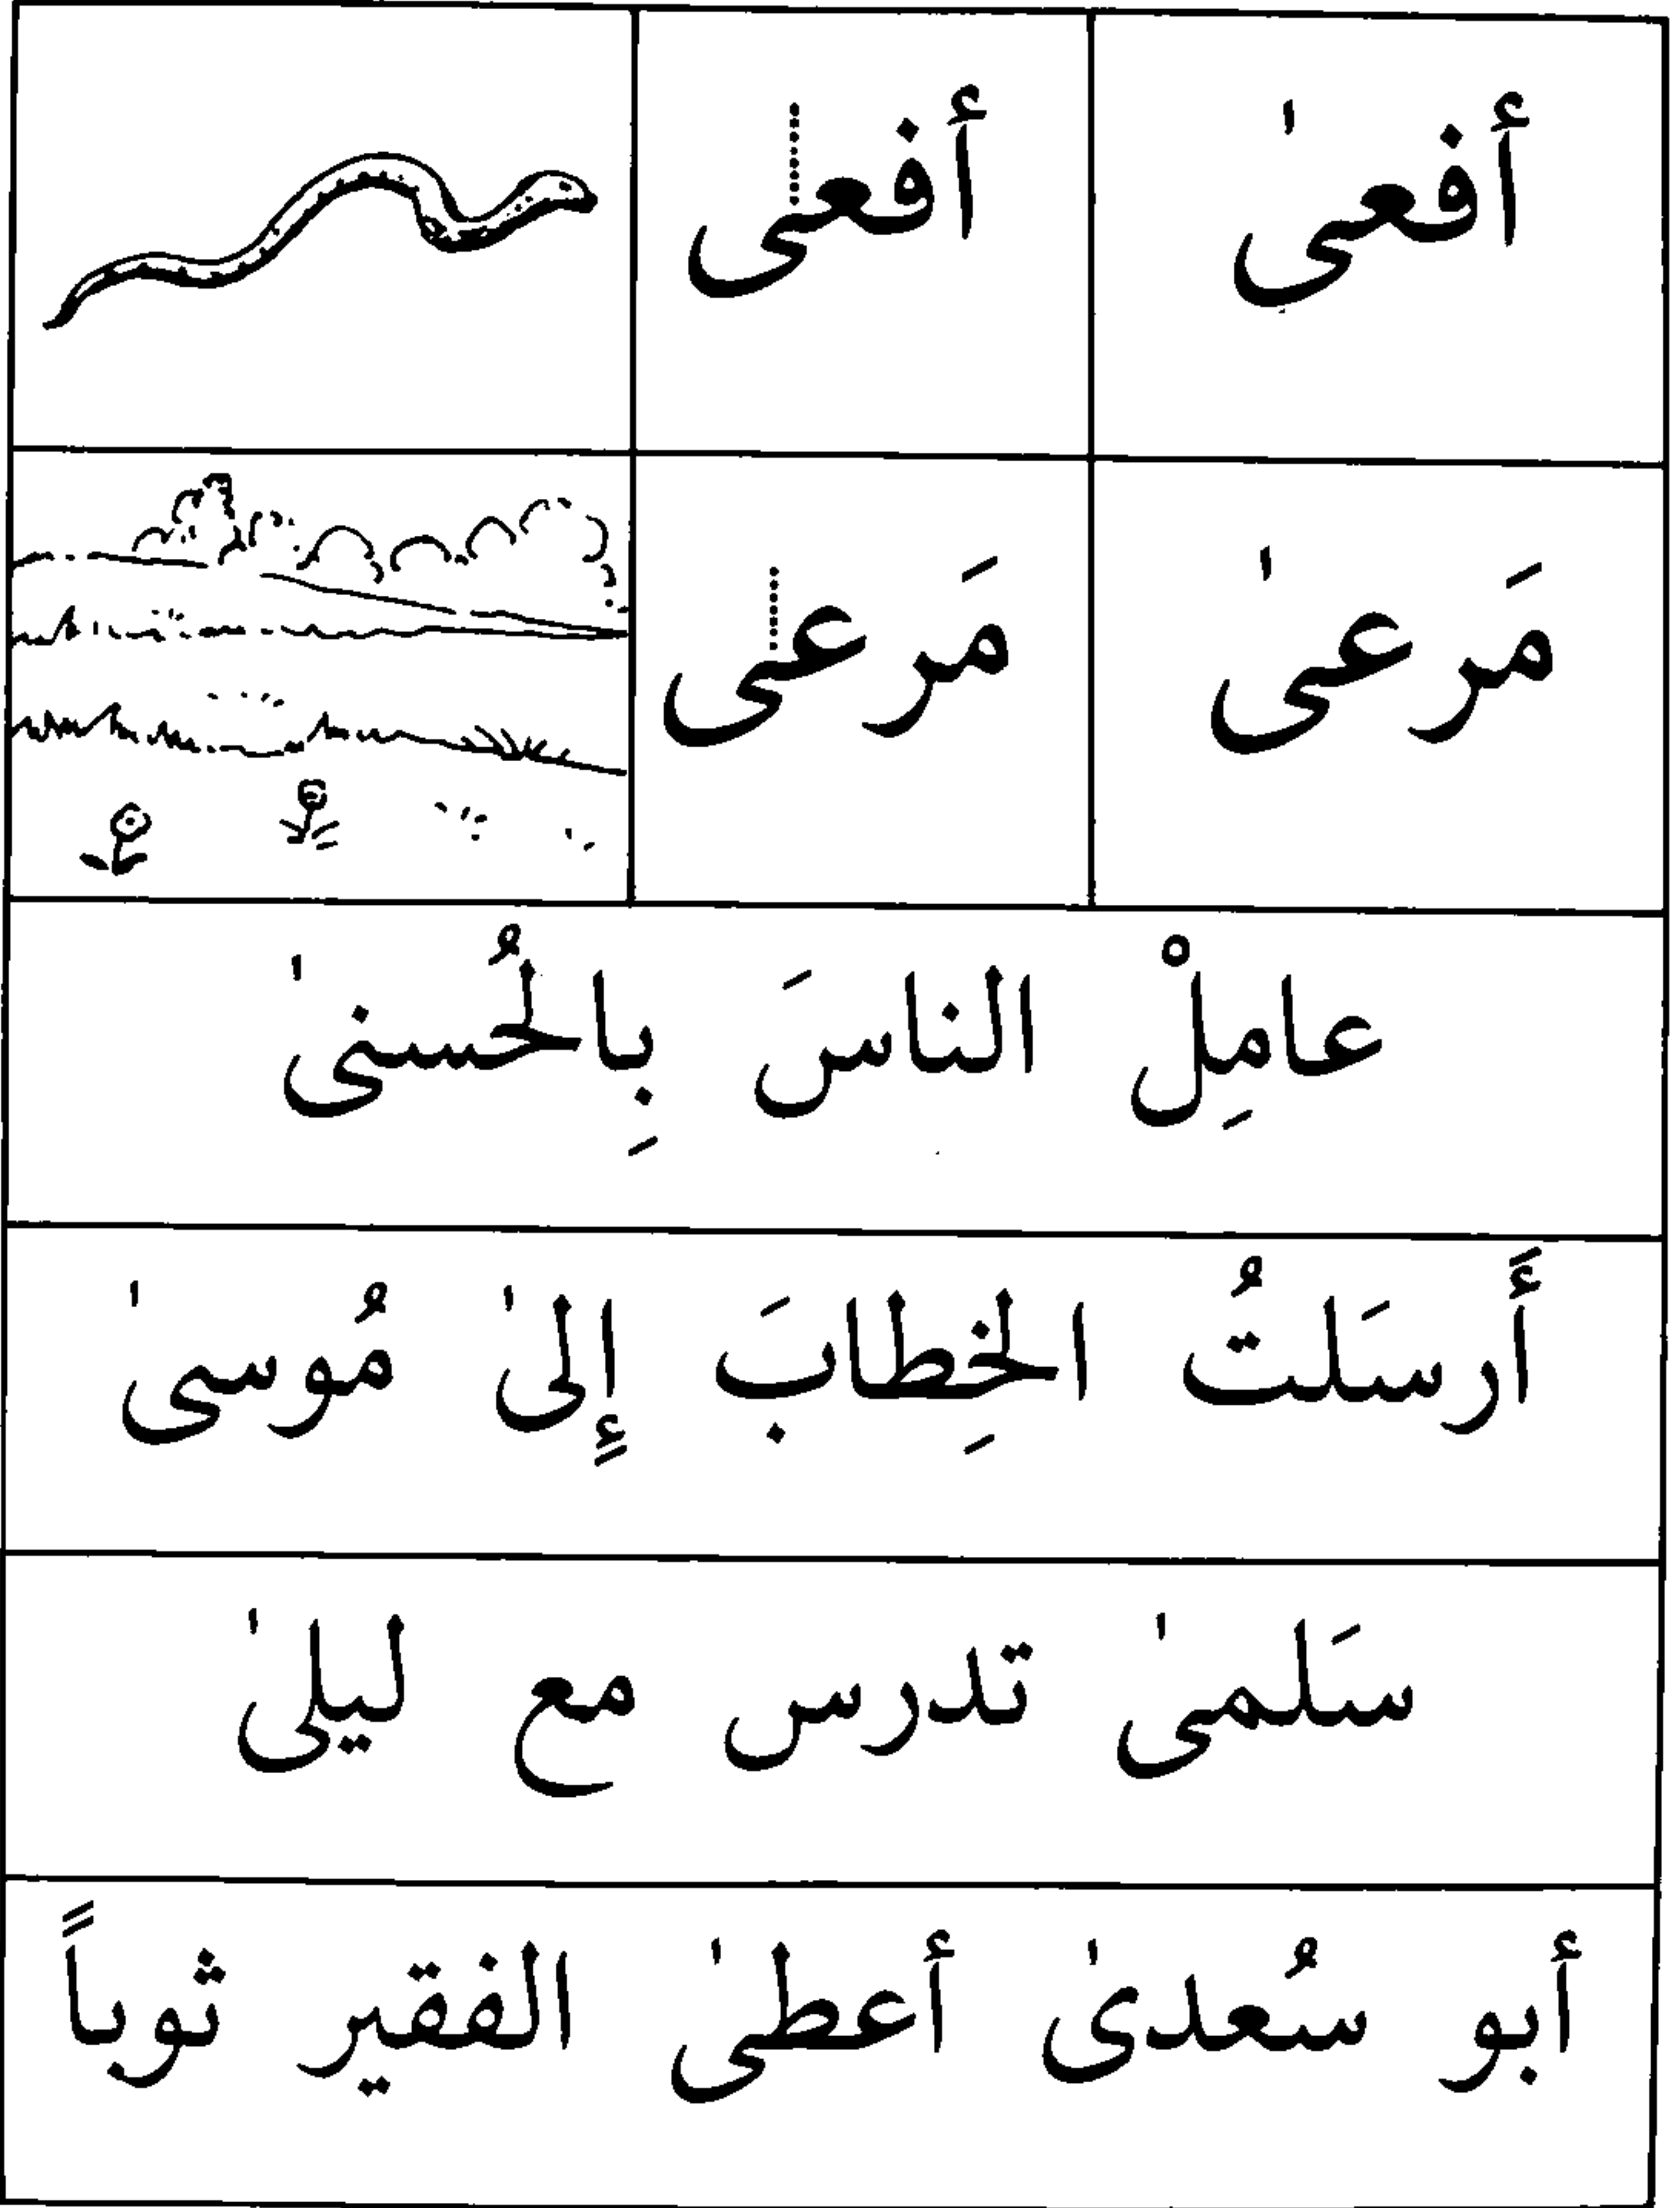 أفعىٰ أفعى
مَرعىٰ مَرعى
عامِلْ الناسَ بِالحُسنىٰ
أَرسَلتُ الخِطابَ إِلىٰ مُوسىٰ
سَلمىٰ تدرس مع ليلىٰ
أبو سُعدىٰ أعطىٰ الفقير ثوباً